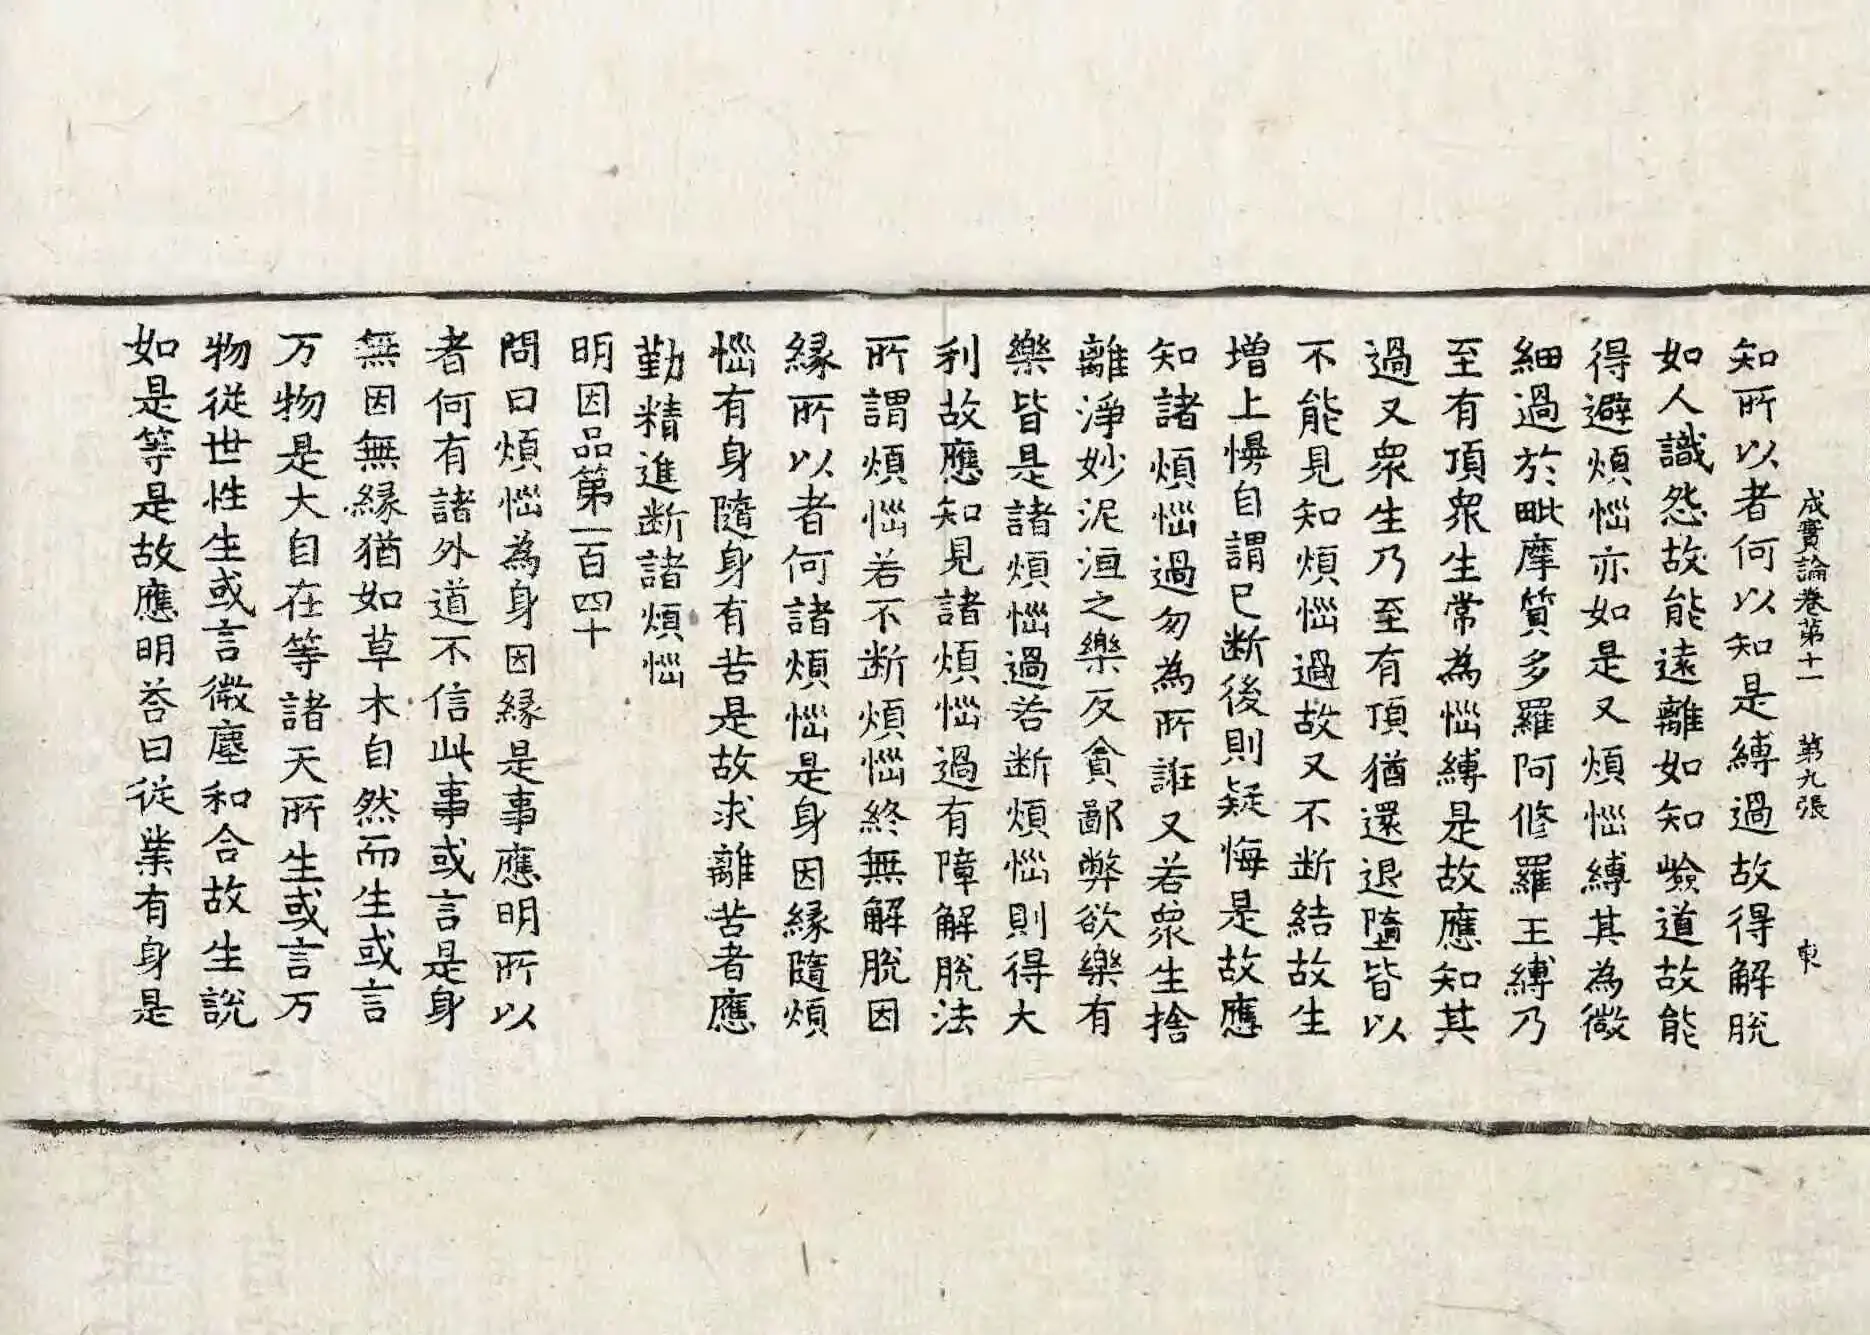 成實論卷第十一　第九張　東
知所以者何以知是縛過故得解脫
如人識怨故能遠離如知嶮道故能
得避煩惱亦如是又煩惱縛其為微
細過於毗摩質多羅阿修羅王縛乃
至有頂衆生常為惱縛是故應知其
過又衆生乃至有頂猶還退墮皆以
不能見知煩惱過故又不断結故生
增上慢自謂已断後則疑悔是故應
知諸煩惱過勿為所誑又若衆生捨
離淨妙泥洹之樂反貪鄙弊欲樂有
樂皆是諸煩惱過若断煩惱則得大
利故應知見諸煩惱過有障解脫法
所謂煩惱若不断煩惱終無解脫因
縁所以者何諸煩惱是身因縁隨煩
惱有身隨身有苦是故求離苦者應
勤精進断諸煩惱
明因品第一百四十
問曰煩惱為身因縁是事應明所以
者何有諸外道不信此事或言是身
無因無縁猶如草木自然而生或言
万物是大自在等諸天所生或言万
物從世性生或言微塵和合故生說
如是等是故應明荅曰從業有身是